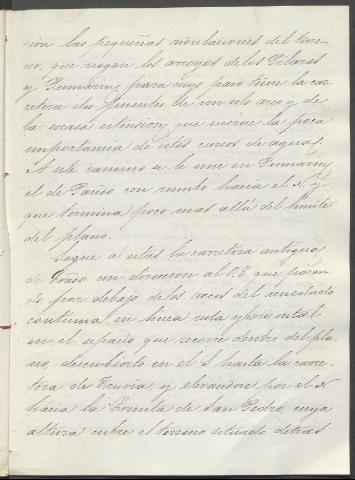 con las pequeñas ondulaciones del terre-
no, que riegan los arroyos de los Pilares
y Pumarin, para cuyo paso tiene la car-
retera dos puentes de un solo arco y de
la escasa estension que merece la poca
importancia de estos cursos de aguas.
A este camino se le une en Pumarin
el de con rumbo hacia el N. y
que termina poco mas allá del limite
del plano.
Sigue a estas la carretera antigua
de Grado con direccion al O.E. que pasan-
do por debajo de los arcos del acueducto
continua en linea recta y horizontal
en el espacio que recorre dentro del pla-
no, descubierto en el S. hasta la carre-
tera de Trubia, y elevandose por el N
hacia la Ermita de San Pedro, cuya
altura cubre el terreno situado detras